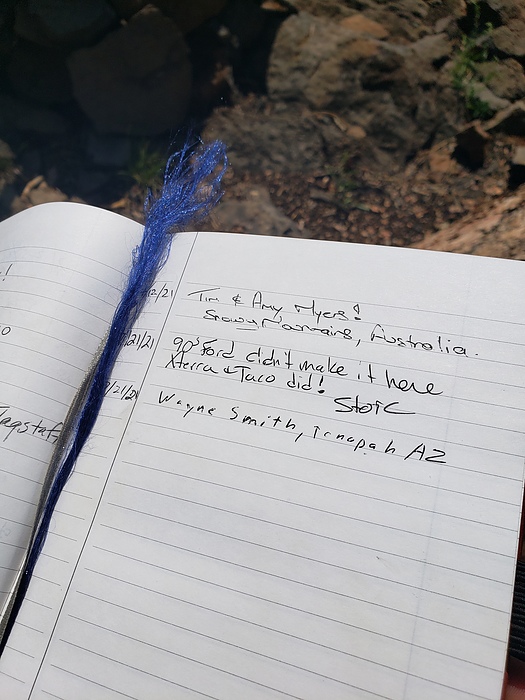 !
2/21 Tim & Amy Myers!
Snowy Mountains, Australia.
21/21 90s Ford didn't make it here
Xterra & Taco did!
Stoic
/21/21 Wayne Smith, Tonopah AZ
Flagstaff